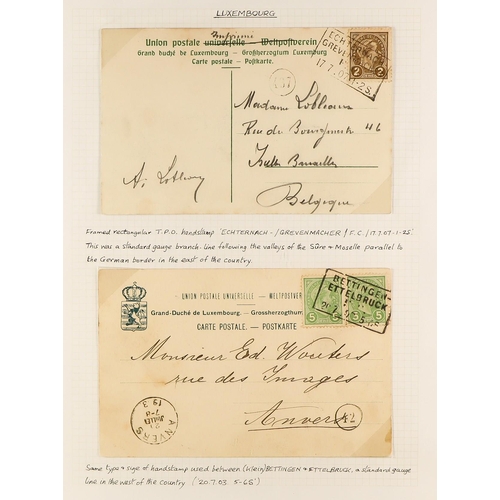 LUXEMBOURG
Imprimé
Union postale universelle – Weltpostverein
Grand duché de Luxembourg — Großherzogthum Luxemburg
Carte postale - Postkarte.
ECHTERNACH-
GREVENMACHER
17.7.07 1-2S.
2
Madame
Rue de 46
Bruxelles
Belgique
A.
Framed rectangular T.P.O. handstamp 'ECHTERNACH-/GREVENMACHER/F.C./17.7.07-1-2S'
This was a standard gauge branch-line following the valleys of the Sûre & Moselle parallel to
the German border in the east of the country.
UNION POSTALE UNIVERSELLE — WELTPOSTVEREIN
Grand-Duché de Luxembourg. — Grossherzogthum
CARTE POSTALE. — POSTKARTE
BETTINGEN-
ETTELBRUCK
5 5
Monsieur Ed. Wouters
rue des Images
Anvers
ANVERS
Same type & size of handstamp used between (Ulflin)BETTINGEN & ETTELBRUCK, a standard gauge
line in the west of the country ('20.7.03 5-6S')